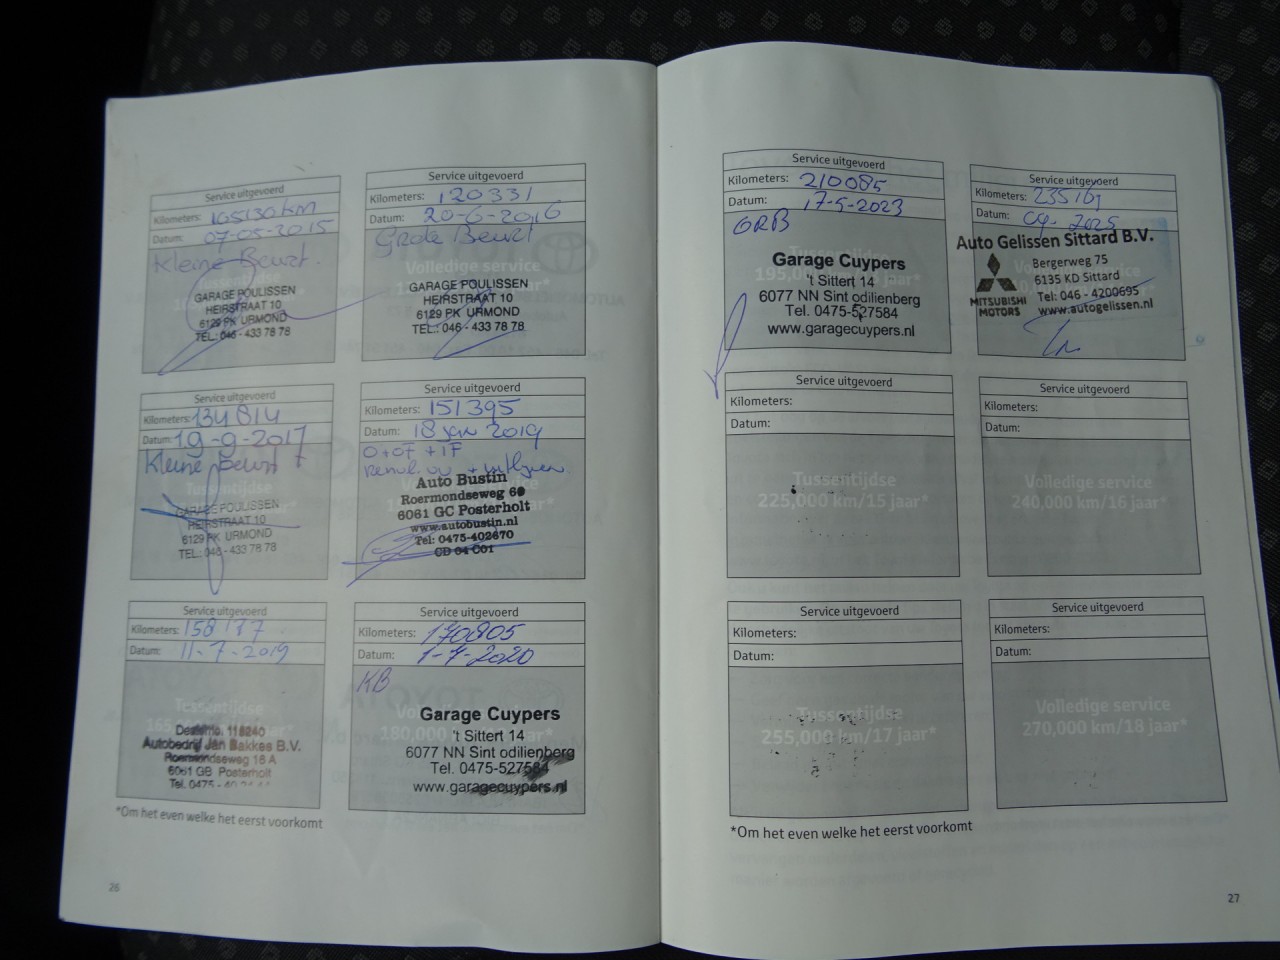 Service uitgevoerd
Kilometers: 105130 km
Datum: 07-05-2015
Kleine Beurt.
GARAGE POULISSEN
HEIRSTRAAT 10
6129 PK URMOND
TEL.: 046 - 433 78 78
Service uitgevoerd
Kilometers: 120331
Datum: 20-6-2016
Grote Beurt
Volledige service
GARAGE POULISSEN
HEIRSTRAAT 10
6129 PK URMOND
TEL.: 046 - 433 78 78
Service uitgevoerd
Kilometers: 134814
Datum: 19-9-2017
Kleine Beurt
GARAGE POULISSEN
HEIRSTRAAT 10
6129 PK URMOND
TEL.: 046 - 433 78 78
Service uitgevoerd
Kilometers: 151395
Datum: 18 jan 2019
O+OF + IF
Auto Bustin
Roermondseweg
6061 GC Posterholt
www.autobustin.nl
Tel: 0475-402670
CD 04 C01
Service uitgevoerd
Kilometers: 158137
Datum: 11-7-2019
Tussentijdse
Autobedrijf Jan Bakkes B.V.
Roermondseweg 16 A
6061 GB Posterholt
Tel. 0475 -
Service uitgevoerd
Kilometers: 170905
Datum: 1-7-2020
KB
180,000
Garage Cuypers
't Sittert 14
6077 NN Sint odilienberg
Tel. 0475-527584
www.garagecuypers.nl
*Om het even welke het eerst voorkomt
26
Service uitgevoerd
Kilometers: 210085
Datum: 17-5-2023
GRB
Tussentijdse
195,000
Garage Cuypers
't Sittert 14
6077 NN Sint odilienberg
Tel. 0475-527584
www.garagecuypers.nl
Service uitgevoerd
Kilometers:
Datum: 2025
Auto Gelissen Sittard B.V.
Bergerweg 75
6135 KD Sittard
Tel: 046 - 4200695
www.autogelissen.nl
MITSUBISHI
MOTORS
Service uitgevoerd
Kilometers:
Datum:
Tussentijdse
225,000 km/15 jaar*
Service uitgevoerd
Kilometers:
Datum:
Volledige service
240,000 km/16 jaar*
Service uitgevoerd
Kilometers:
Datum:
Tussentijdse
255,000 km/17 jaar*
Service uitgevoerd
Kilometers:
Datum:
Volledige service
270,000 km/18 jaar*
*Om het even welke het eerst voorkomt
27